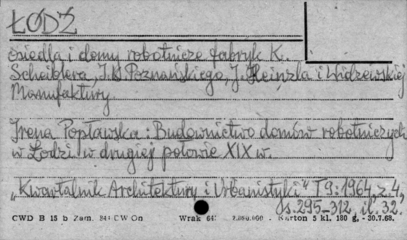 ŁÓDŹ
osiedla i domy robotnicze fabryk K.
Scheiblera, J. K. Poznańskiego, J. Heinzla i Widzewskiej
Manufaktury.
Irena Popławska: Budownictwo domów robotniczych
w Łodzi w drugiej połowie XIX w.
„Kwartalnik Architektury i Urbanistyki" T9:1964, z.4,
s. 295-312, il. 32.
CWD B 15 b Zam. CW On Wrak Karton 5 kl. 180 g. - 30.7.68.